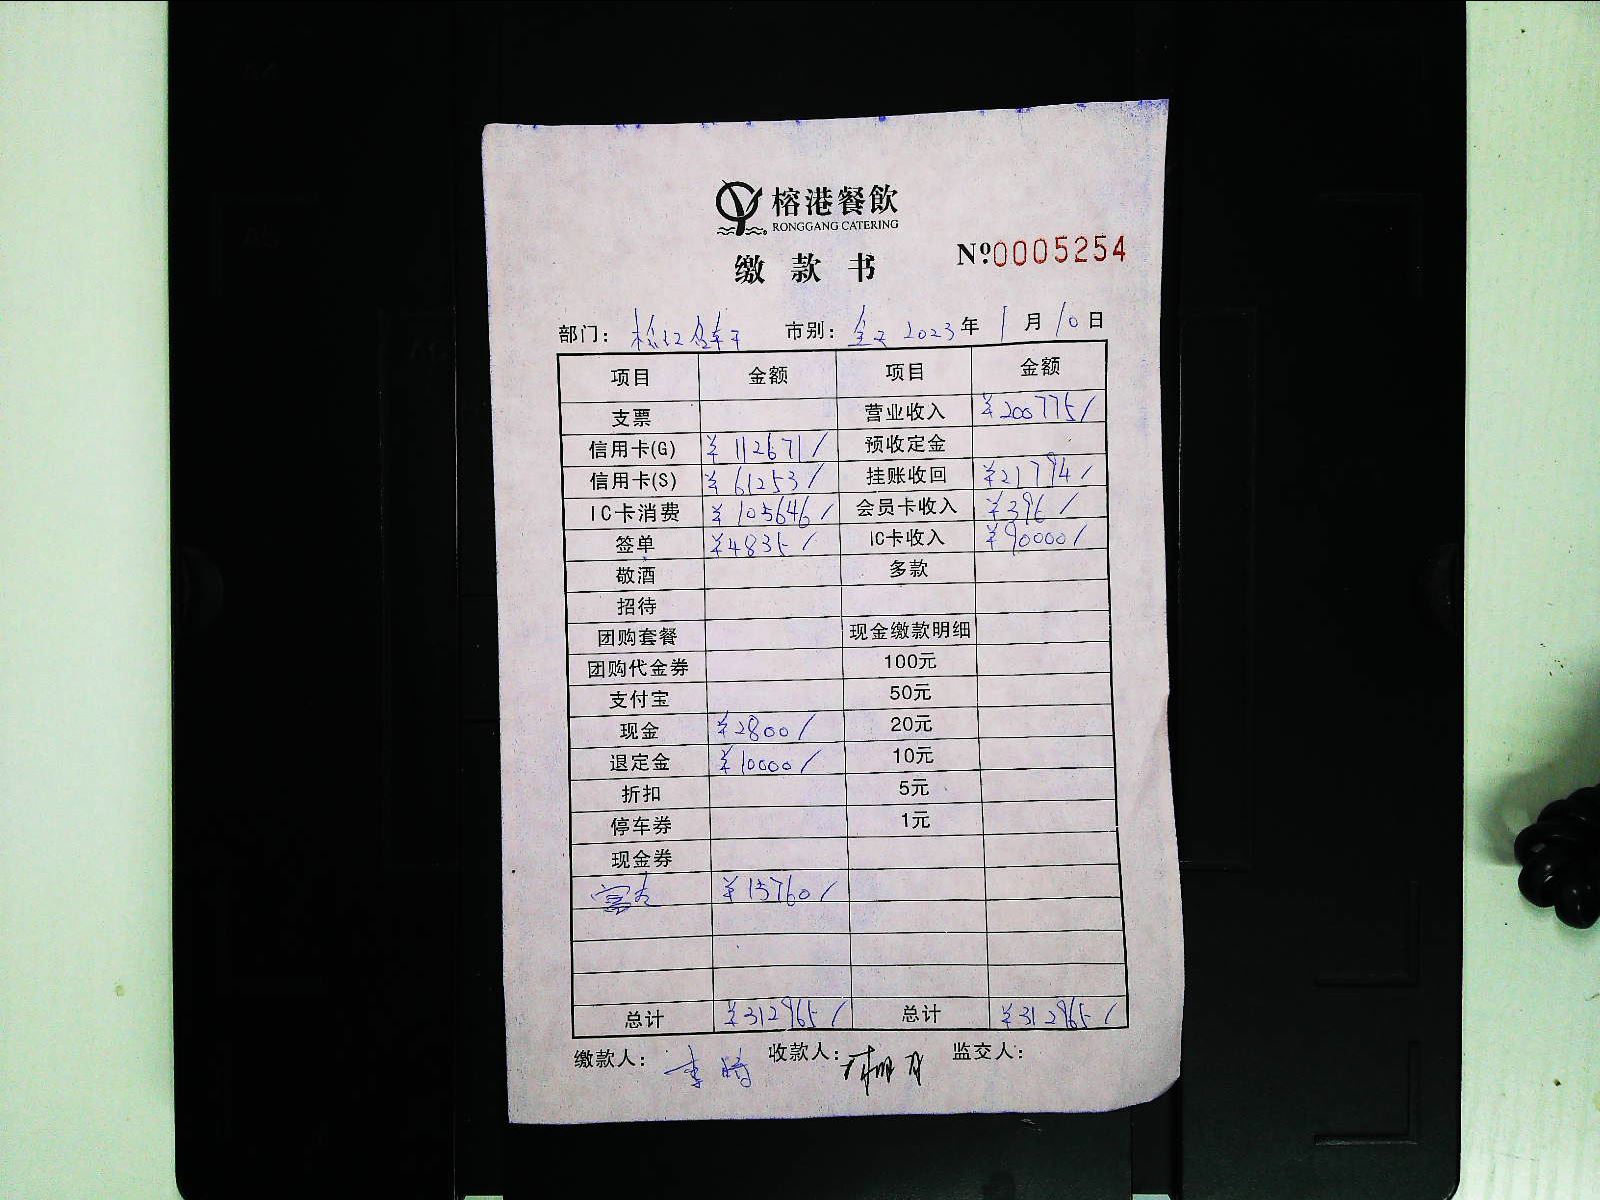 榕港餐飲
RONGGANG CATERING
缴款书 №0005254
部门： 市别：全天 2023年 1月 10日
项目 金额 项目 金额
支票 营业收入 ¥200775/
信用卡(G) ¥112671/ 预收定金
信用卡(S) ¥61253/ 挂账收回 ¥21794/
IC卡消费 ¥105646/ 会员卡收入 ¥396/
签单 ¥4835/ IC卡收入 ¥90000/
敬酒 多款
招待
团购套餐 现金缴款明细
团购代金券 100元
支付宝 50元
现金 ¥2800/ 20元
退定金 ¥10000/ 10元
折扣 5元
停车券 1元
现金券
¥15760/
总计 ¥312965/ 总计 ¥312965/
缴款人： 收款人： 监交人：